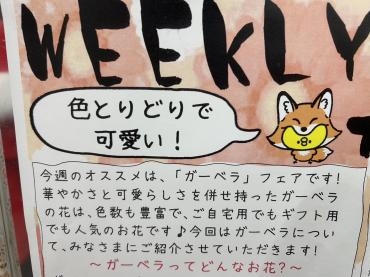 WEEKLY
色とりどりで
可愛い！
今週のオススメは、「ガーベラ」フェアです！
華やかさと可愛らしさを併せ持ったガーベラ
の花は、色数も豊富で、ご自宅用でもギフト用
でも人気のお花です♪今回はガーベラについ
て、みなさまにご紹介させていただきます！
～ガーベラってどんなお花？～